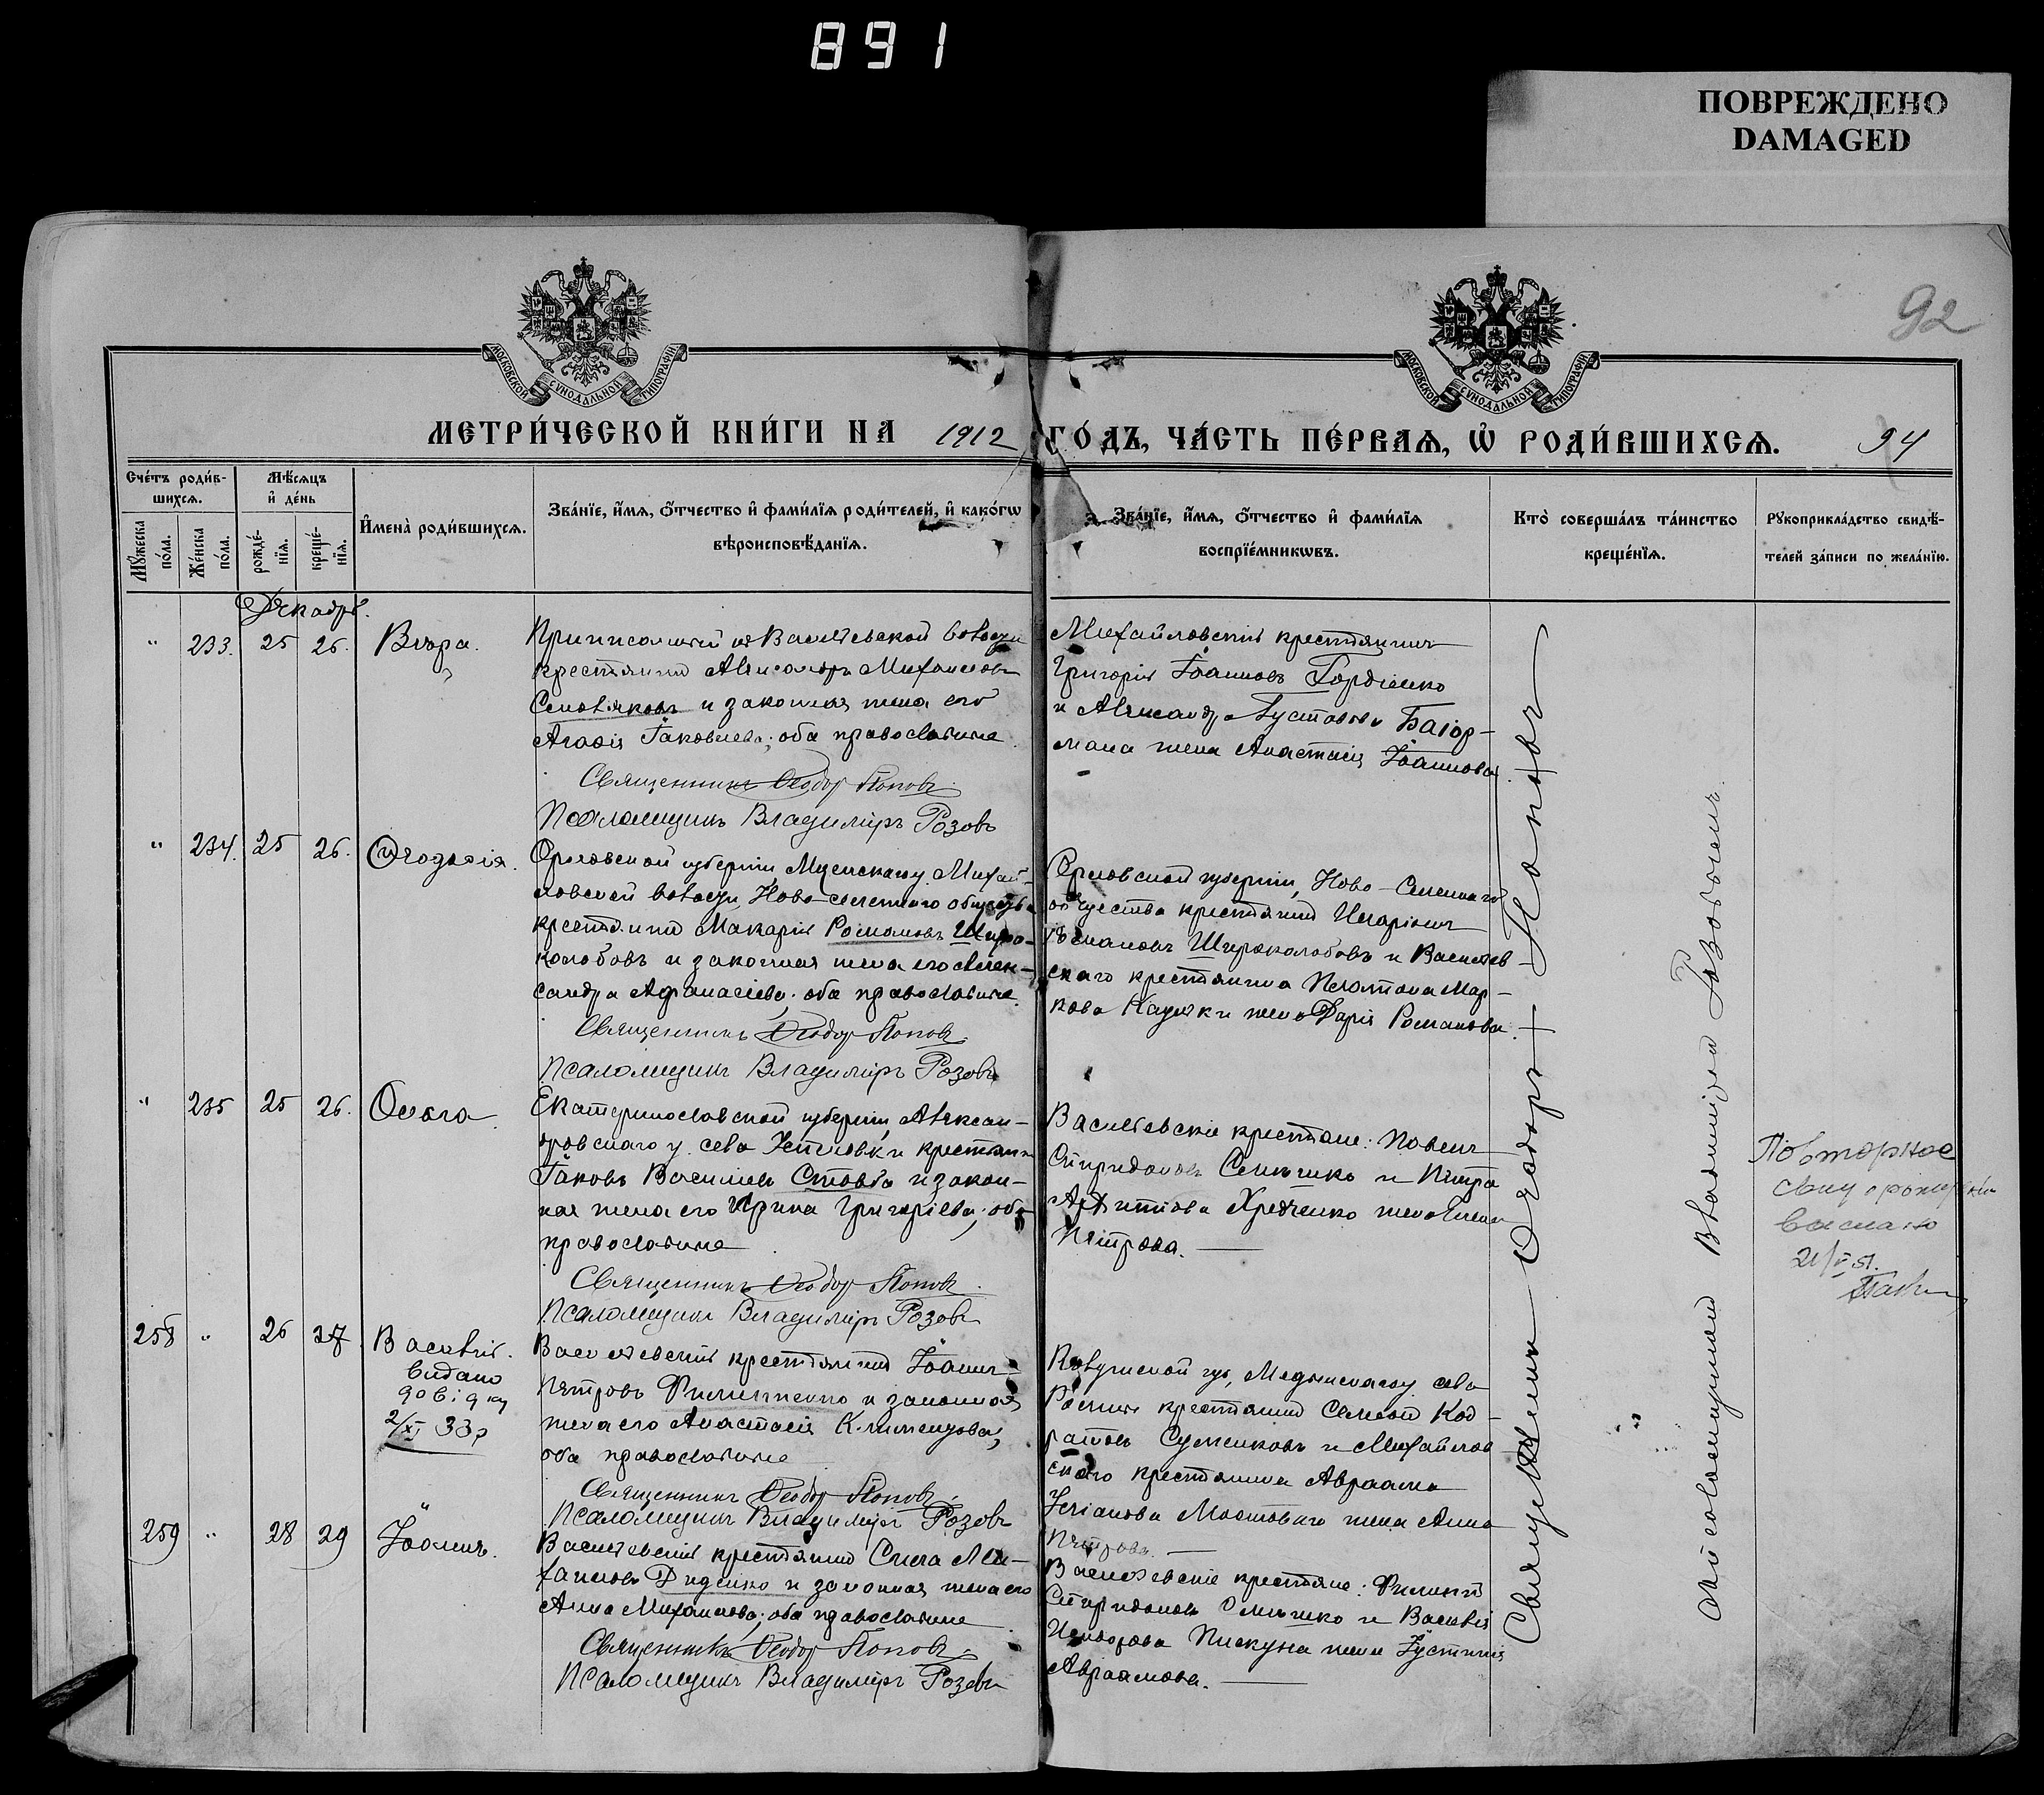 891
ПОВРЕЖДЕНО
DAMAGED
92
МОСКОВСКОЙ СУНОДАЛЬНОЙ ТИПОГРАФІИ
МОСКОВСКОЙ СУНОДАЛЬНОЙ ТИПОГРАФІИ
МЕТРИ́ЧЕСКОЙ КНИ́ГИ НА 1912 ГО́ДЪ, ЧА́СТЬ ПЕ́РВАЯ, Ѡ РОДИ́ВШИХСЯ. 94
Сче́тъ роди́в-
шихся.
Мѣ́сяцъ
и҆ де́нь
Мꙋ́жеска
по́ла.
Же́нска
по́ла.
рожде́-
нїя.
креще́-
нїя.
И҆мена̀ роди́вшихся.
Зва́нїе, и҆́мя, ѻ҆́тчество и҆ фами́лїя роди́телей, и҆ како́гѡ
вѣроисповѣ́данїя.
Зва́нїе, и҆́мя, ѻ҆́тчество и҆ фами́лїя
воспрїе́мникѡвъ.
Кто̀ соверша́лъ та́инство
креще́нїя.
Рꙋкоприкла́дство свидѣ́-
телей за́писи по жела́нїю.
Декабрь.
" 233. 25 26. Вѣра.
Приписанный къ Васильевской волости
крестьянинъ Александръ Михаиловъ
и законная жена его
Іаковлева; оба православные
Священникъ Ѳеодоръ Поповъ
Псаломщикъ Владиміръ Розовъ
Михайловскій крестьянинъ
Григорій Іоанновъ Гордіенко
и Александра Густавова Багор-
мана жена Анастасія Іоаннова
" 234. 25 26. Ѳеодосія.
Орловской губерніи, Мценскаго у. Михай-
ловской волости, Ново-селеннаго общества
крестьянинъ Макарій Романовъ Широ-
колобовъ и законная жена его Алек-
сандра Афанасіева; оба православные
Священникъ Ѳеодоръ Поповъ
Псаломщикъ Владиміръ Розовъ
Орловской губерніи, Ново-Селеннаго
общества крестьянинъ Иларіонъ
Романовъ Широколобовъ и Васильев-
скаго крестьянина Платона Мар-
кова жена Дарія Романова.
" 235 25 26. Ольга.
Екатеринославской губерніи, Алексан-
дровскаго у. села крестьянинъ
Іаковъ Васильевъ Стовба и закон-
ная жена его Ирина Григоріева; оба
православные
Священникъ Ѳеодоръ Поповъ
Псаломщикъ Владиміръ Розовъ
Васильевскіе крестьяне: Павелъ
Спиридоновъ и Петра
Хредченко жена Елена
Петрова.
Повторное
свид о рождении
выслано
21/V 51.
258 " 26 27 Василій.
видано
довідку
2/XI 33р
Васильевскій крестьянинъ Іоаннъ
Петровъ Филипенко и законная
жена его Анастасія Климентова;
оба православные
Священникъ Ѳеодоръ Поповъ
Псаломщикъ Владиміръ Розовъ
Калужской губ, Медынскаго у. села
крестьянинъ Симеонъ Код-
ратовъ Сушенковъ и Михайлов-
скаго крестьянина Авраама
Мостового жена Анна
Петрова.
259 " 28 29 Іоаннъ.
Васильевскій крестьянинъ Сила Ми-
хаиловъ Диденко и законная жена его
Анна Михаилова; оба православные
Священникъ Ѳеодоръ Поповъ
Псаломщикъ Владиміръ Розовъ
Васильевскіе крестьяне: Филиппъ
Спиридоновъ и Василія
Пискуна жена Іустинія
Авраамова.
Священникъ Ѳеодоръ Поповъ
псаломщикомъ Владиміромъ Розовымъ.